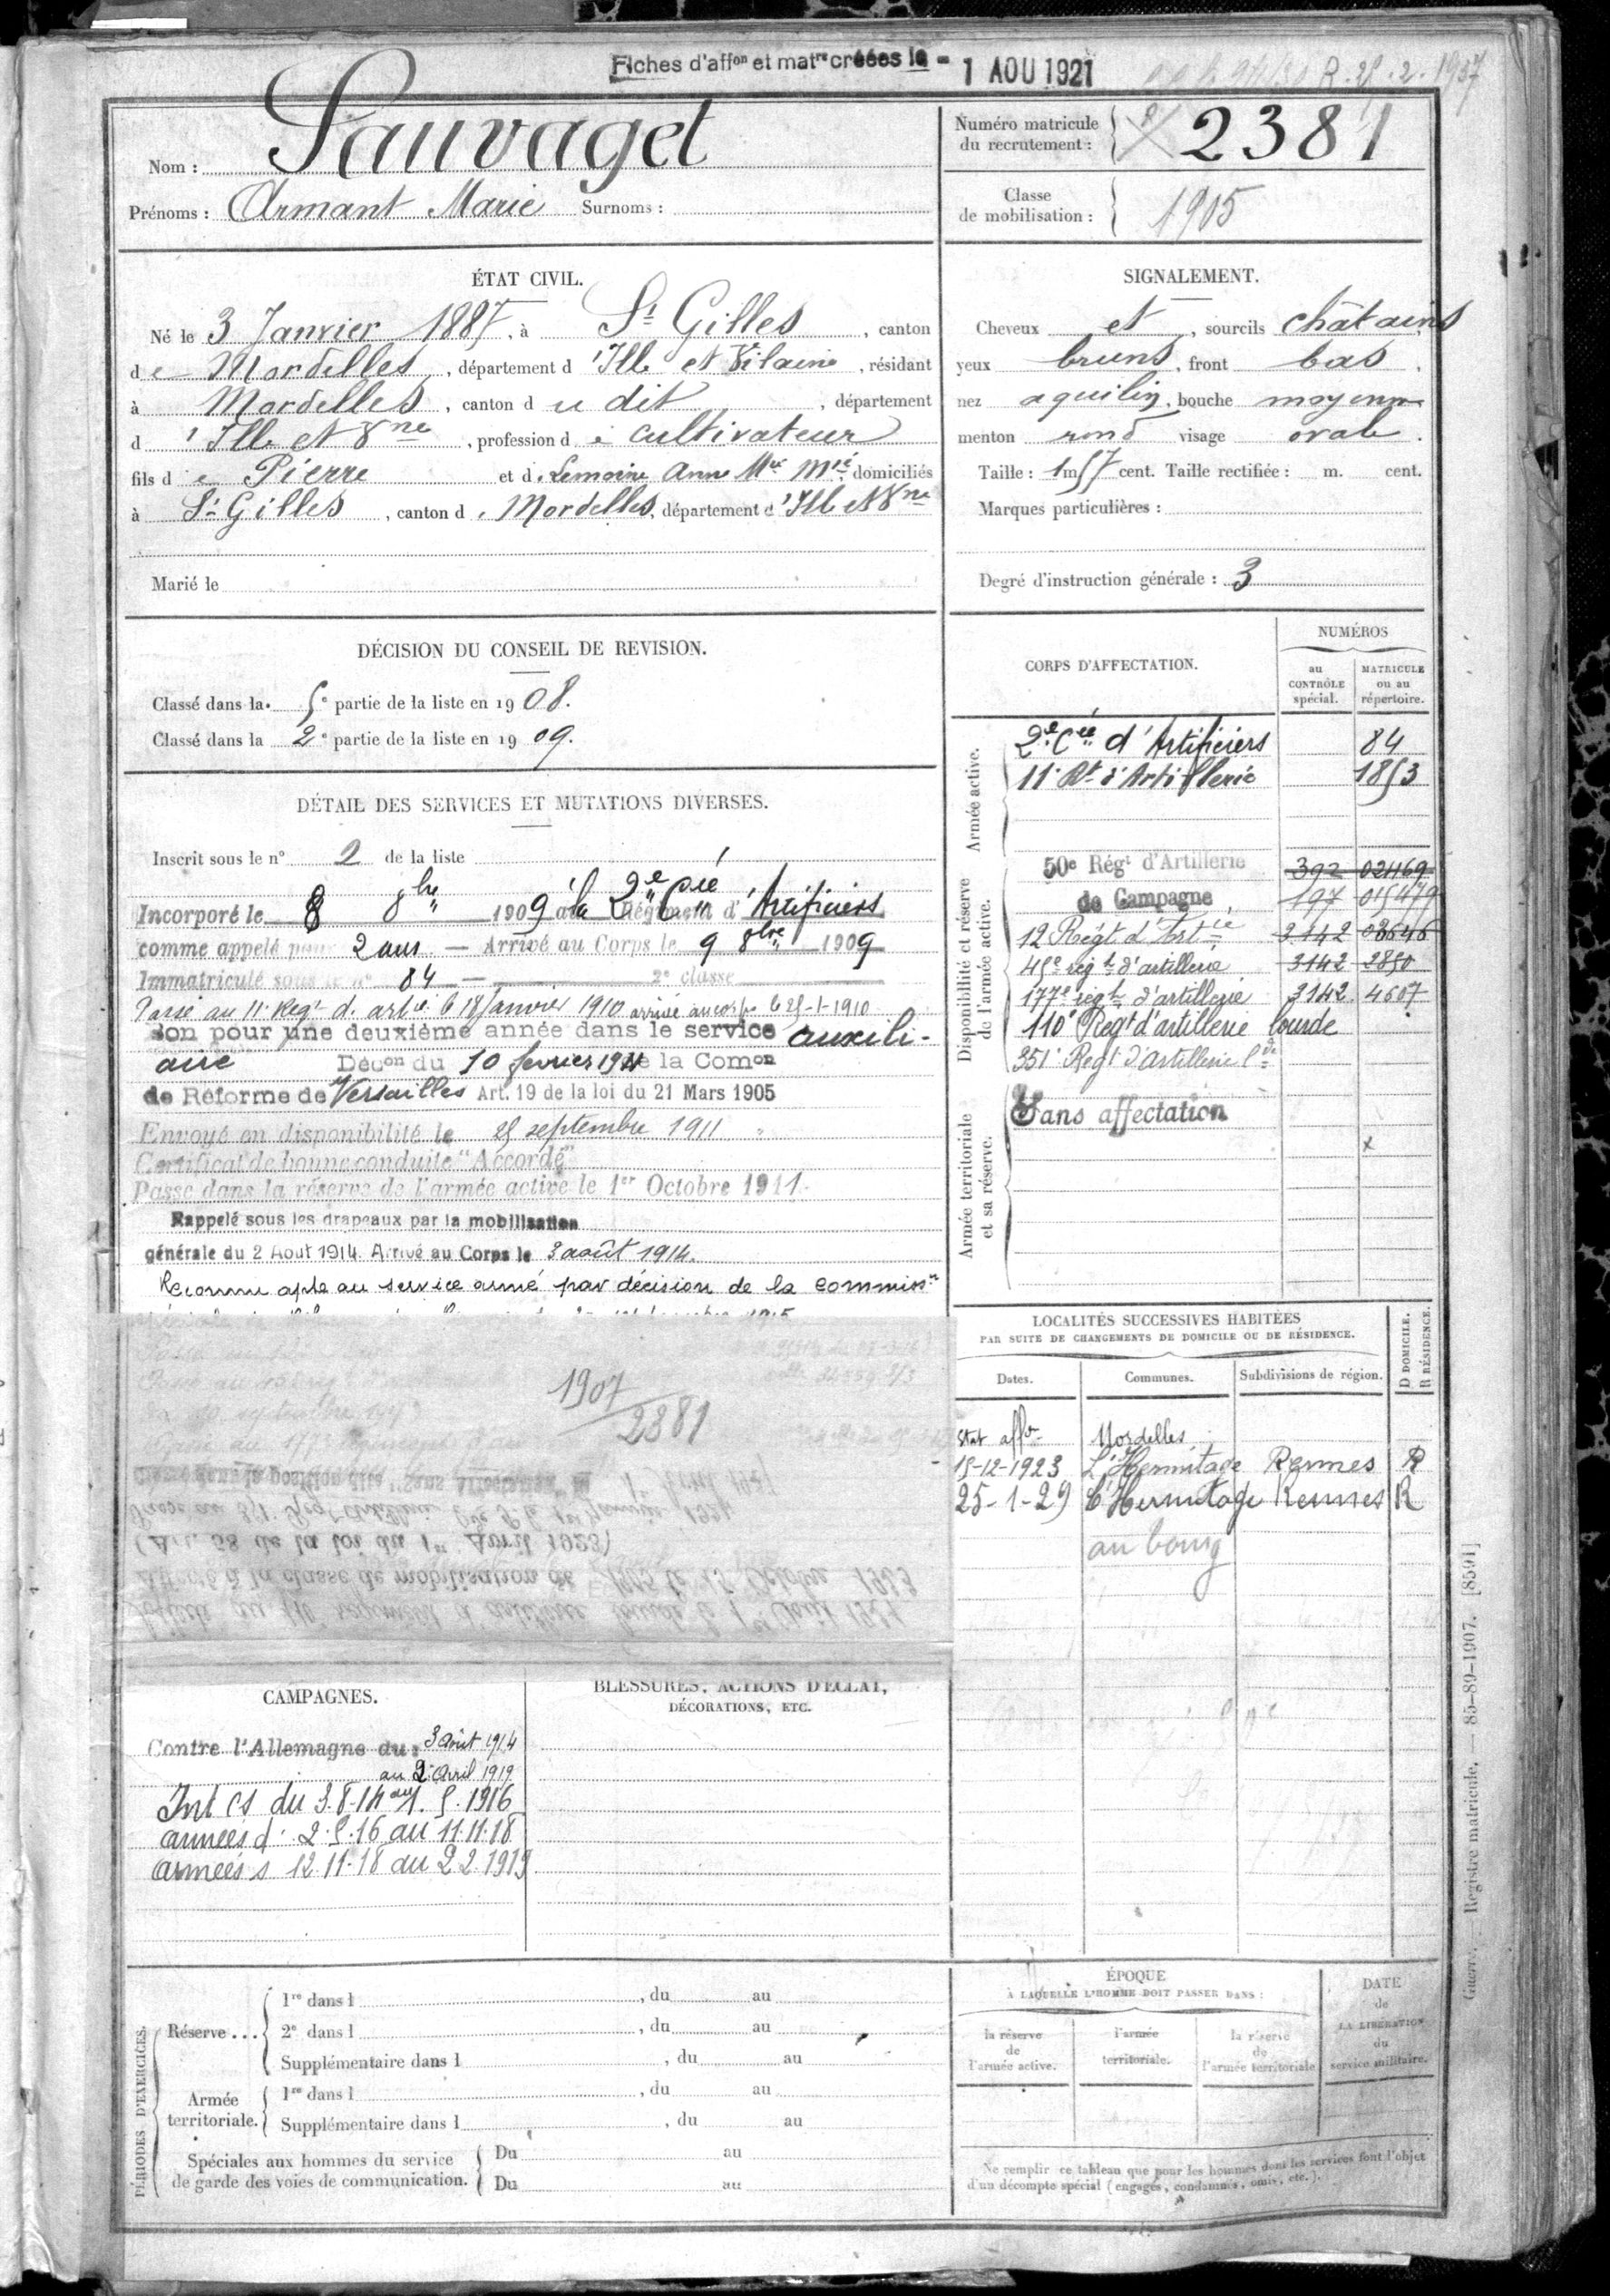 Fiches d'affon et matre créées le - 1 AOU 1921
R. 25.2.1937
Nom : Sauvaget
Prénoms : Armant Marie Surnoms :
Numéro matricule du recrutement : 2381
Classe de mobilisation : 1905
ÉTAT CIVIL.
Né le 3 Janvier 1887, à St Gilles, canton
de Mordelles, département d'Ille et Vilaine, résidant
à Mordelles, canton du dit, département
d'Ille et Vne, profession de cultivateur
fils de Pierre et de Lemoine Anne Mie domiciliés
à St Gilles, canton de Mordelles, département d'Ille et Vne
Marié le
SIGNALEMENT.
Cheveux et, sourcils châtains,
yeux bruns, front bas,
nez aquilin, bouche moyenne
menton rond visage ovale.
Taille : 1m57 cent. Taille rectifiée : m. cent.
Marques particulières :
Degré d'instruction générale : 3
DÉCISION DU CONSEIL DE REVISION.
Classé dans la 5e partie de la liste en 1908.
Classé dans la 2e partie de la liste en 1909.
DÉTAIL DES SERVICES ET MUTATIONS DIVERSES.
Inscrit sous le n° 2 de la liste
Incorporé le 8 8bre 1909 à la 2e Cie d'Artificiers
comme appelé pour 2 ans — Arrivé au Corps le 9 8bre 1909
Immatriculé sous le n° 84 — 2e classe
Passé au 11e Regt d'artie le 18 Janvier 1910 arrivé au corps le 25-1-1910
Bon pour une deuxième année dans le service auxili-
aire Décon du 10 fevrier 1911 de la Comon
de Réforme de Versailles Art. 19 de la loi du 21 Mars 1905
Envoyé en disponibilité le 25 septembre 1911
Certificat de bonne conduite "Accordé"
Passé dans la réserve de l'armée active le 1er Octobre 1911.
Rappelé sous les drapeaux par la mobilisation
générale du 2 Août 1914. Arrivé au Corps le 3 août 1914.
Reconnu apte au service armé par décision de la commisson
1907
2381
CORPS D'AFFECTATION.
NUMÉROS
au CONTRÔLE spécial.
MATRICULE ou au répertoire.
Armée active.
2e Cie d'Artificiers 84
11e Rt d'Artillerie 1853
Disponibilité et réserve de l'armée active.
50e Régt d'Artillerie 392 021169
de Campagne 197 015479
12 Régt d'Artie 3142 03646
45e regt d'artillerie 3142 2850
177e regt d'artillerie 3142 4607
110e Regt d'artillerie lourde
351e Regt d'Artillerie lde
Armée territoriale et sa réserve.
Sans affectation
x
LOCALITÉS SUCCESSIVES HABITÉES
PAR SUITE DE CHANGEMENTS DE DOMICILE OU DE RÉSIDENCE.
D DOMICILE.
R RÉSIDENCE.
Dates. Communes. Subdivisions de région.
Stat affon Mordelles
15-12-1923 L'Hermitage Rennes R
25-1-29 L'Hermitage Rennes R
au bourg
CAMPAGNES.
Contre l'Allemagne du : 3 août 1914
au 2 Avril 1919
Int CS du 3.8.14 au 1.5.1916
armées d. 2.5.16 au 11.11.18
armées s 12.11.18 au 2 2.1919
BLESSURES, ACTIONS D'ÉCLAT,
DÉCORATIONS, ETC.
PÉRIODES D'EXERCICES.
Réserve ...
1re dans l , du au
2e dans l , du au
Supplémentaire dans l , du au
Armée territoriale.
1re dans l , du au
Supplémentaire dans l , du au
Spéciales aux hommes du service
de garde des voies de communication.
Du au
Du au
ÉPOQUE
À LAQUELLE L'HOMME DOIT PASSER DANS :
la réserve de l'armée active.
l'armée territoriale.
la réserve de l'armée territoriale
DATE de LA LIBÉRATION du service militaire.
Ne remplir ce tableau que pour les hommes dont les services font l'objet
d'un décompte spécial (engagés, condamnés, omis, etc.).
Guerre. Registre matricule. — 85-89-1907. [8591]